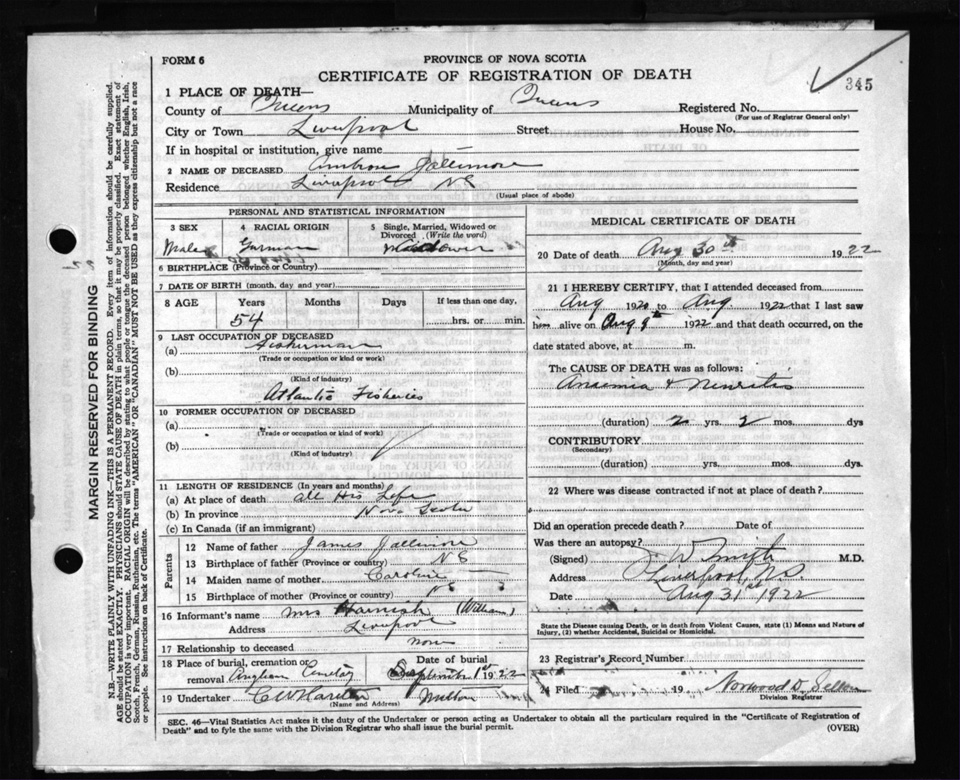 345
FORM 6
PROVINCE OF NOVA SCOTIA
CERTIFICATE OF REGISTRATION OF DEATH
1 PLACE OF DEATH—
County of Queens Municipality of Queens Registered No.
(For use of Registrar General only)
City or Town Liverpool Street House No.
If in hospital or institution, give name
2 NAME OF DECEASED
Residence Liverpool NS
(Usual place of abode)
PERSONAL AND STATISTICAL INFORMATION
3 SEX
Male
4 RACIAL ORIGIN
German
5 Single, Married, Widowed or Divorced (Write the word)
Widower
6 BIRTHPLACE (Province or Country)
7 DATE OF BIRTH (month, day and year)
8 AGE Years Months Days If less than one day,
54 hrs. or min.
9 LAST OCCUPATION OF DECEASED
(a) Fisherman
(Trade or occupation or kind or work)
(b)
(Kind of industry)
Atlantic Fisheries
10 FORMER OCCUPATION OF DECEASED
(a)
(Trade or occupation or kind of work)
(b)
(Kind of industry)
11 LENGTH OF RESIDENCE (In years and months)
(a) At place of death all His Life
(b) In province Nova Scotia
(c) In Canada (if an immigrant)
Parents
12 Name of father James
13 Birthplace of father (Province or country) NS
14 Maiden name of mother Caroline
15 Birthplace of mother (Province or country) NS
16 Informant's name Mrs Harnish (William)
Address Liverpool
17 Relationship to deceased none
18 Place of burial, cremation or removal Anglican Cemetery
Date of burial
September 1st 1922
19 Undertaker Milton
(Name and Address)
MEDICAL CERTIFICATE OF DEATH
20 Date of death Aug 30th 1922
(Month, day and year)
21 I HEREBY CERTIFY, that I attended deceased from
Aug 1920 to Aug. 1922 that I last saw
him alive on Aug 9th 1922 and that death occurred, on the
date stated above, at m.
The CAUSE OF DEATH was as follows:
Anaemia & Neuritis
(duration) 2 yrs. 2 mos. dys
CONTRIBUTORY
(Secondary)
(duration) yrs. mos. dys.
22 Where was disease contracted if not at place of death?
Did an operation precede death? Date of
Was there an autopsy?
(Signed) J W Smith M.D.
Address Liverpool, N.S.
Date Aug 31st 1922
State the Disease causing Death, or in death from Violent Causes, state (1) Means and Nature of
Injury, (2) whether Accidental, Suicidal or Homicidal.
23 Registrar's Record Number
24 Filed 19 Norwood D.
Division Registrar
SEC. 46—Vital Statistics Act makes it the duty of the Undertaker or person acting as Undertaker to obtain all the particulars required in the "Certificate of Registration of
Death" and to fyle the same with the Division Registrar who shall issue the burial permit.
(OVER)
MARGIN RESERVED FOR BINDING
N.B.—WRITE PLAINLY WITH UNFADING INK—THIS IS A PERMANENT RECORD. Every item of information should be carefully supplied.
AGE should be stated EXACTLY. PHYSICIANS should STATE CAUSE OF DEATH in plain terms, so that it may be properly classified. Exact statement of
OCCUPATION is very important. RACIAL ORIGIN will be described by stating to what people or tongue the deceased person belonged whether English, Irish,
Scotch, French, German, Russian, Ruthenian, etc. The terms "AMERICAN" or "CANADIAN" MUST NOT BE USED as they express citizenship but not a race
or people. See instructions on back of Certificate.